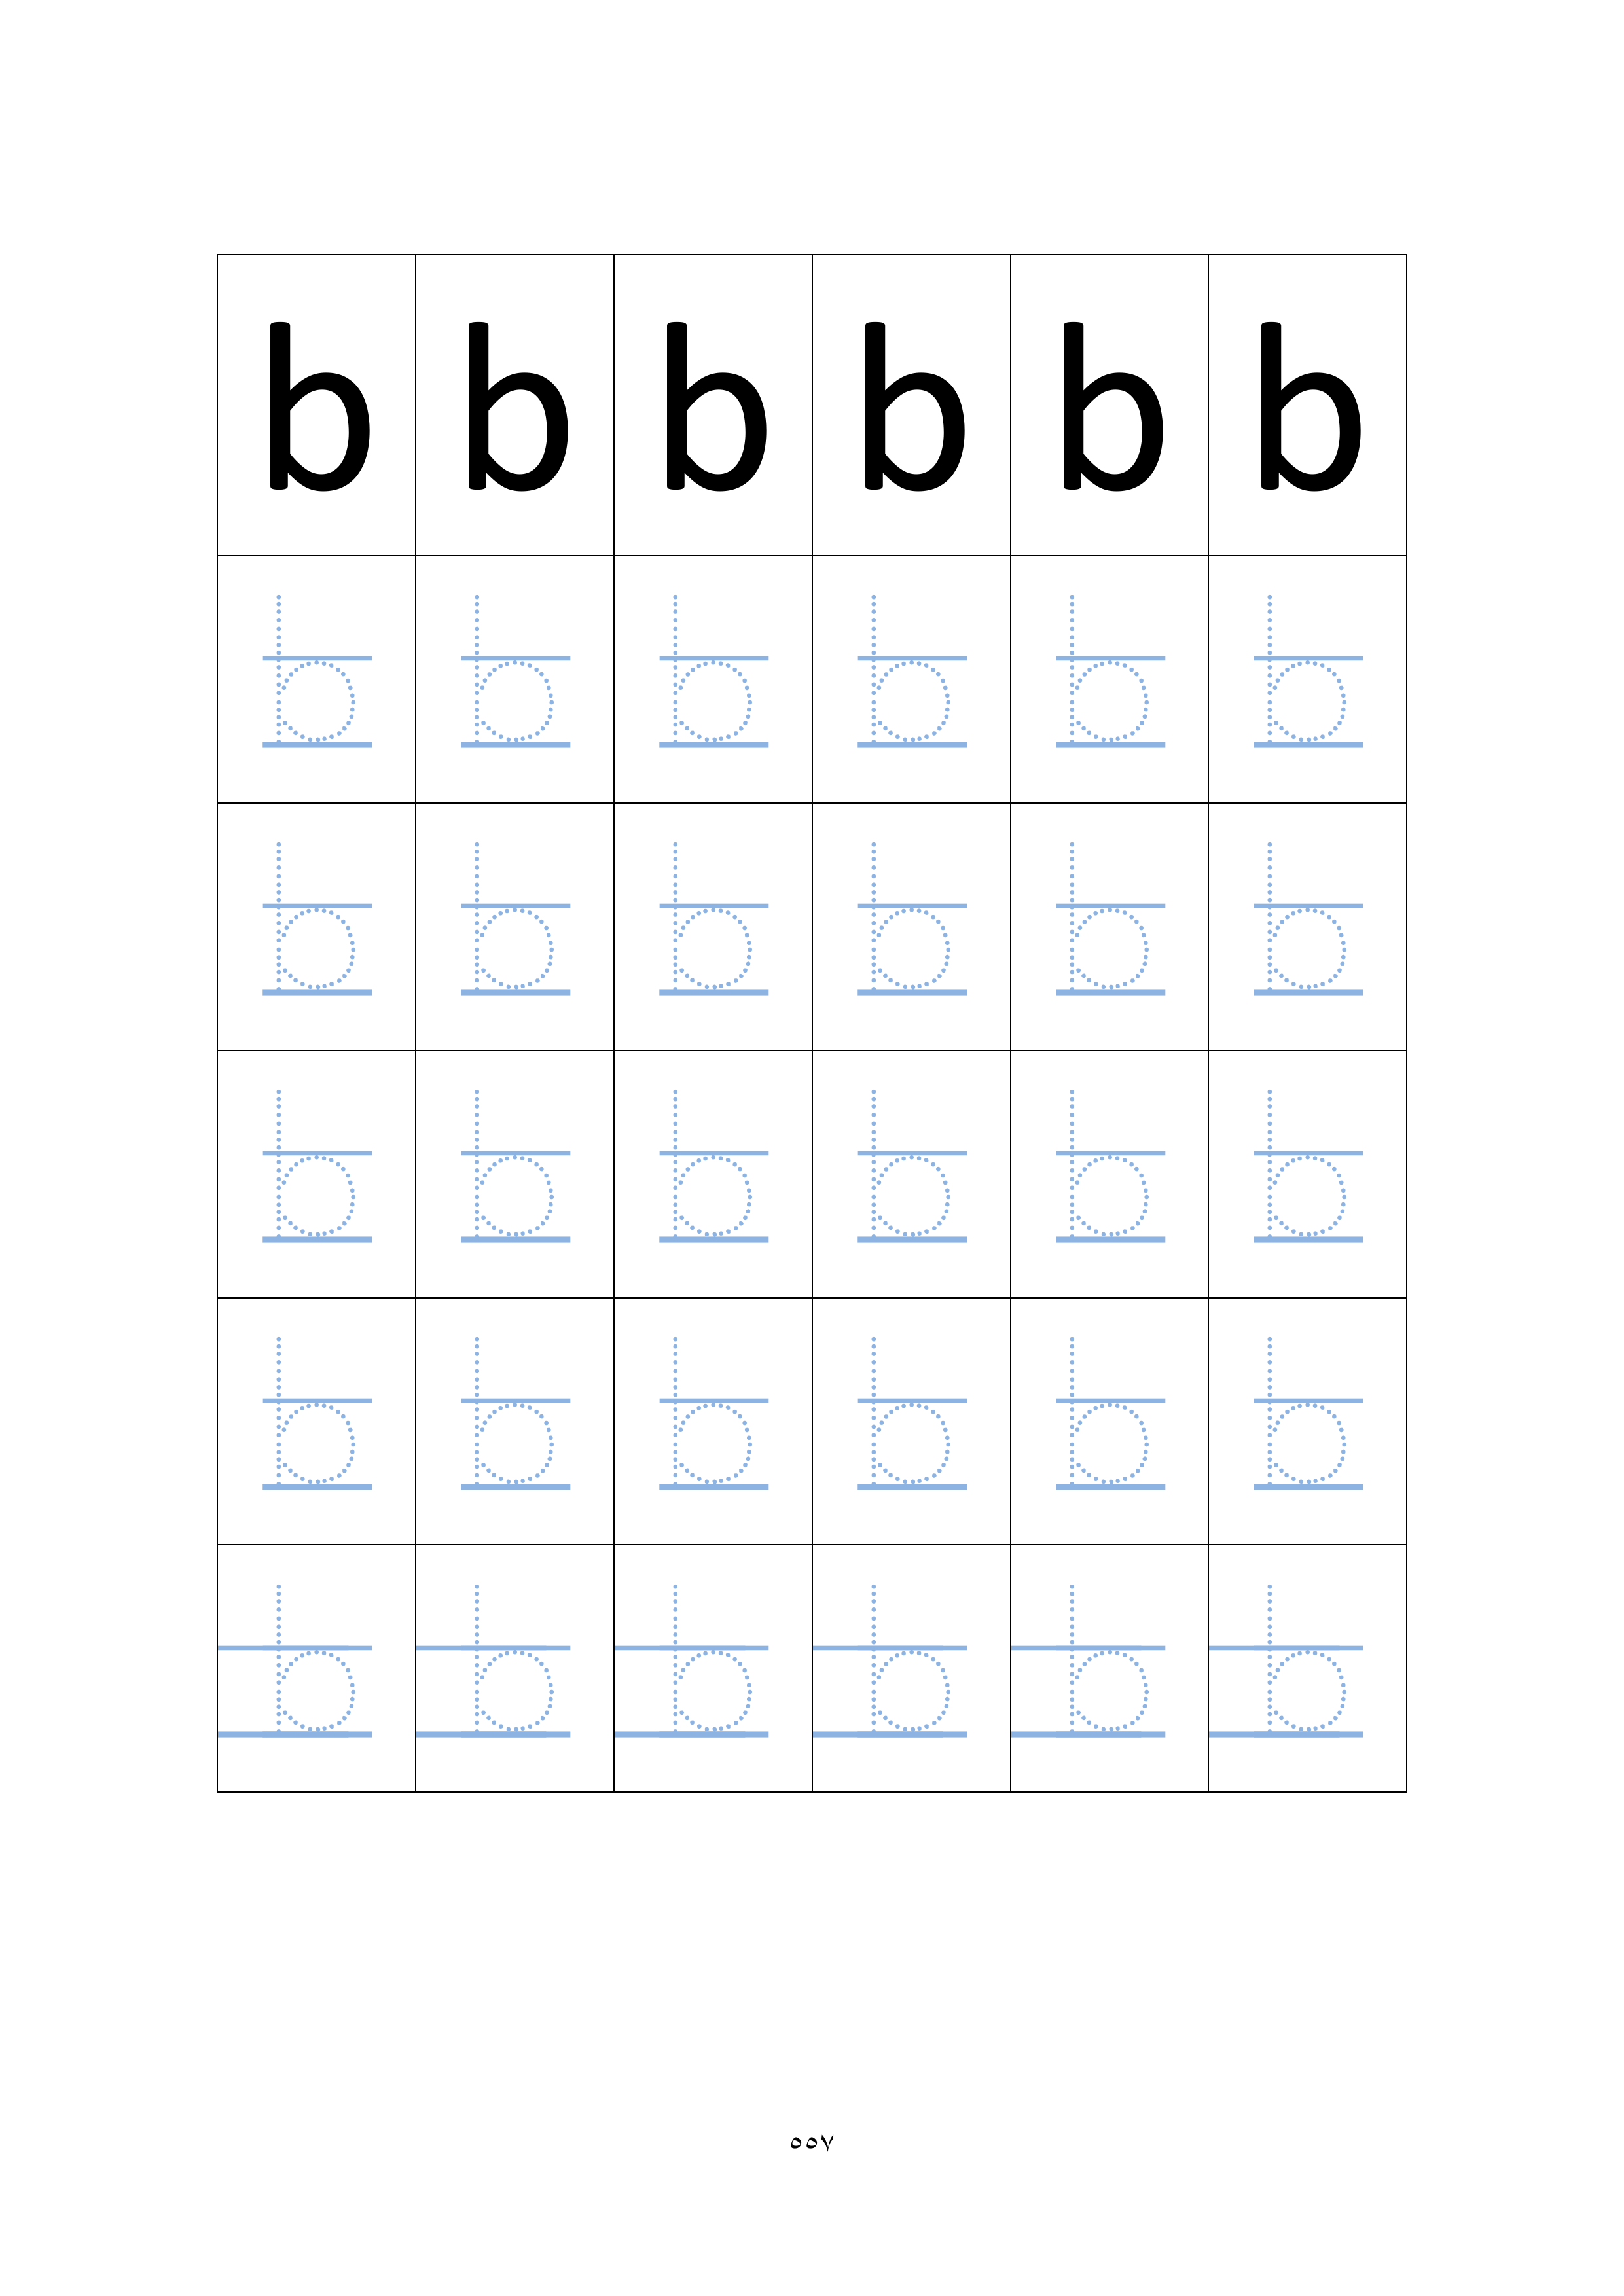 b b b b b b
b b b b b b
b b b b b b
b b b b b b
b b b b b b
b b b b b b
٥٥٧